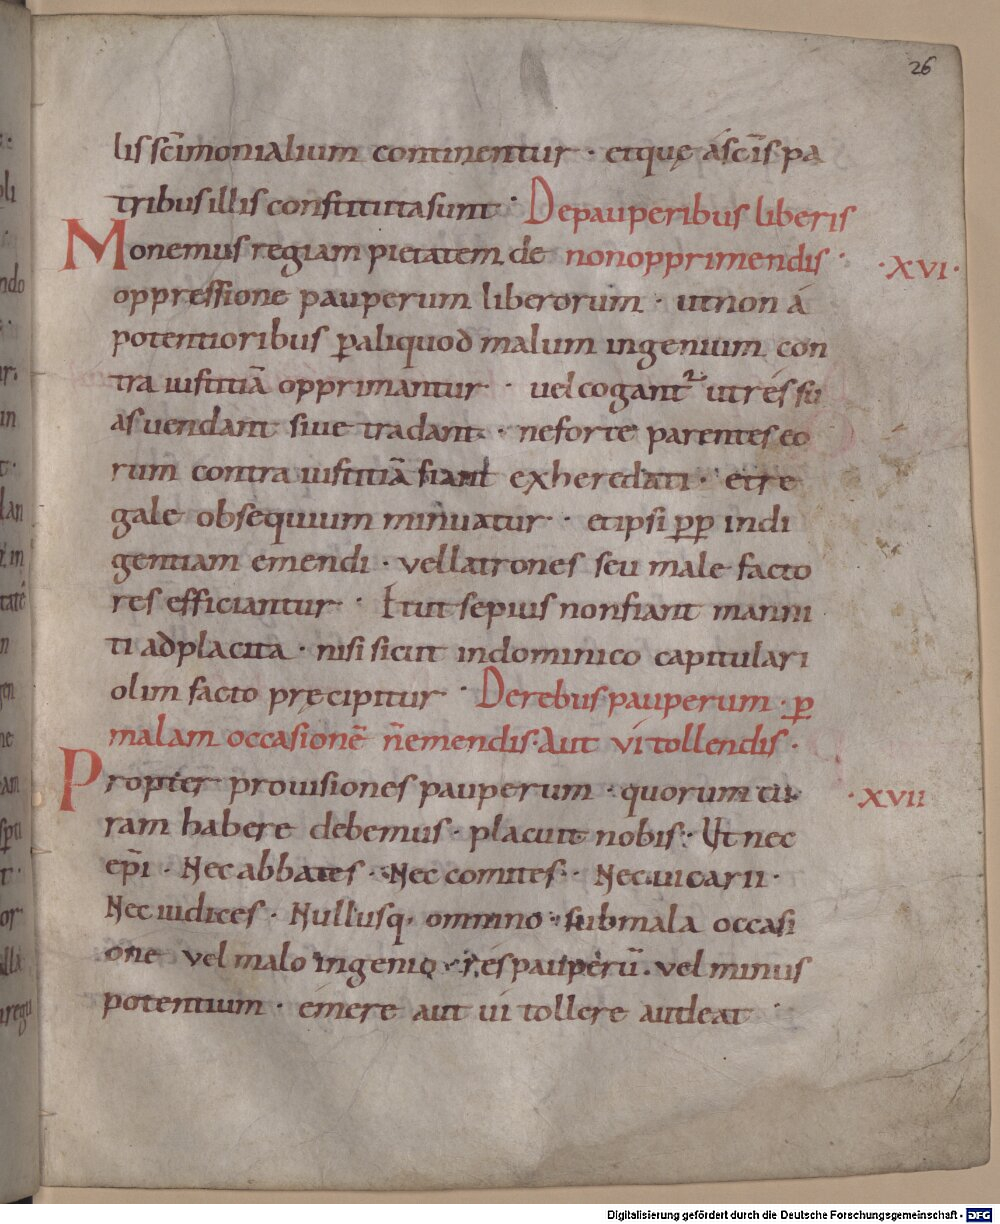 26
lis scīmonialium continentur · etquę á scīs pa
tribus illis constituta sunt · De pauperibus liberis
Monemus regiam pietatem de non opprimendis · ·XVI·
oppressione pauperum liberorum · ut non á
potentioribus ꝑ aliquod malum ingenium con
tra iustitiā opprimantur · vel cogant᷑ ut rés su
as vendant sive tradant · ne forte parentes eo
rum contra iustitiā fiant exheredati · et re
gale obsequium minuatur · et ipsi ꝓpꝑ indi
gentiam emendi · vel latrones seu male facto
res efficiantur · Et ut sepius non fiant manni
ti ad placita · nisi sicut in dominico capitulari
olim facto pręcipitur · De rebus pauperum · ꝑ
malam occasionē n̄ emendis · Aut vi tollendis ·
Propter provisiones pauperum · quorum cu ·XVII
ram habere debemus · placuit nobis · Ut nec
ep̄i · Nec abbates · Nec comites · Nec vicarii ·
Nec iudices · Nullusq· omnino · sub mala occasi
one vel malo ingenio · rés pauperū · vel minus
potentium · emere aut vi tollere audeat ·
Digitalisierung gefördert durch die Deutsche Forschungsgemeinschaft - DFG